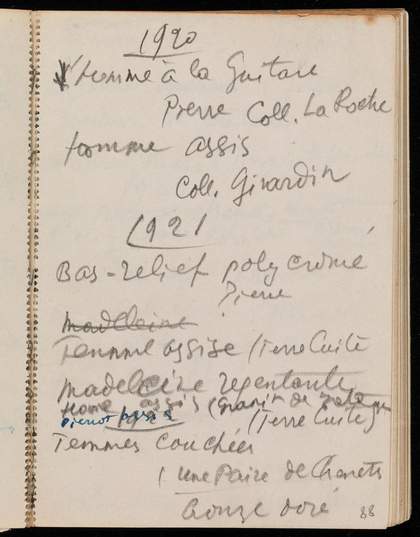 1920
l'homme à la Guitare
Pierre Coll. La Roche
homme assis
Coll. Girardin
1921
Bas-relief polycromé
Pierre
Madleine
Femme assise (Terre Cuite
Madeleine repentante
Home assis (Granit de
pierrot assis (Terre Cuite)
1922
Femmes couchées
(une Paire de Chenets
bronze doré
88